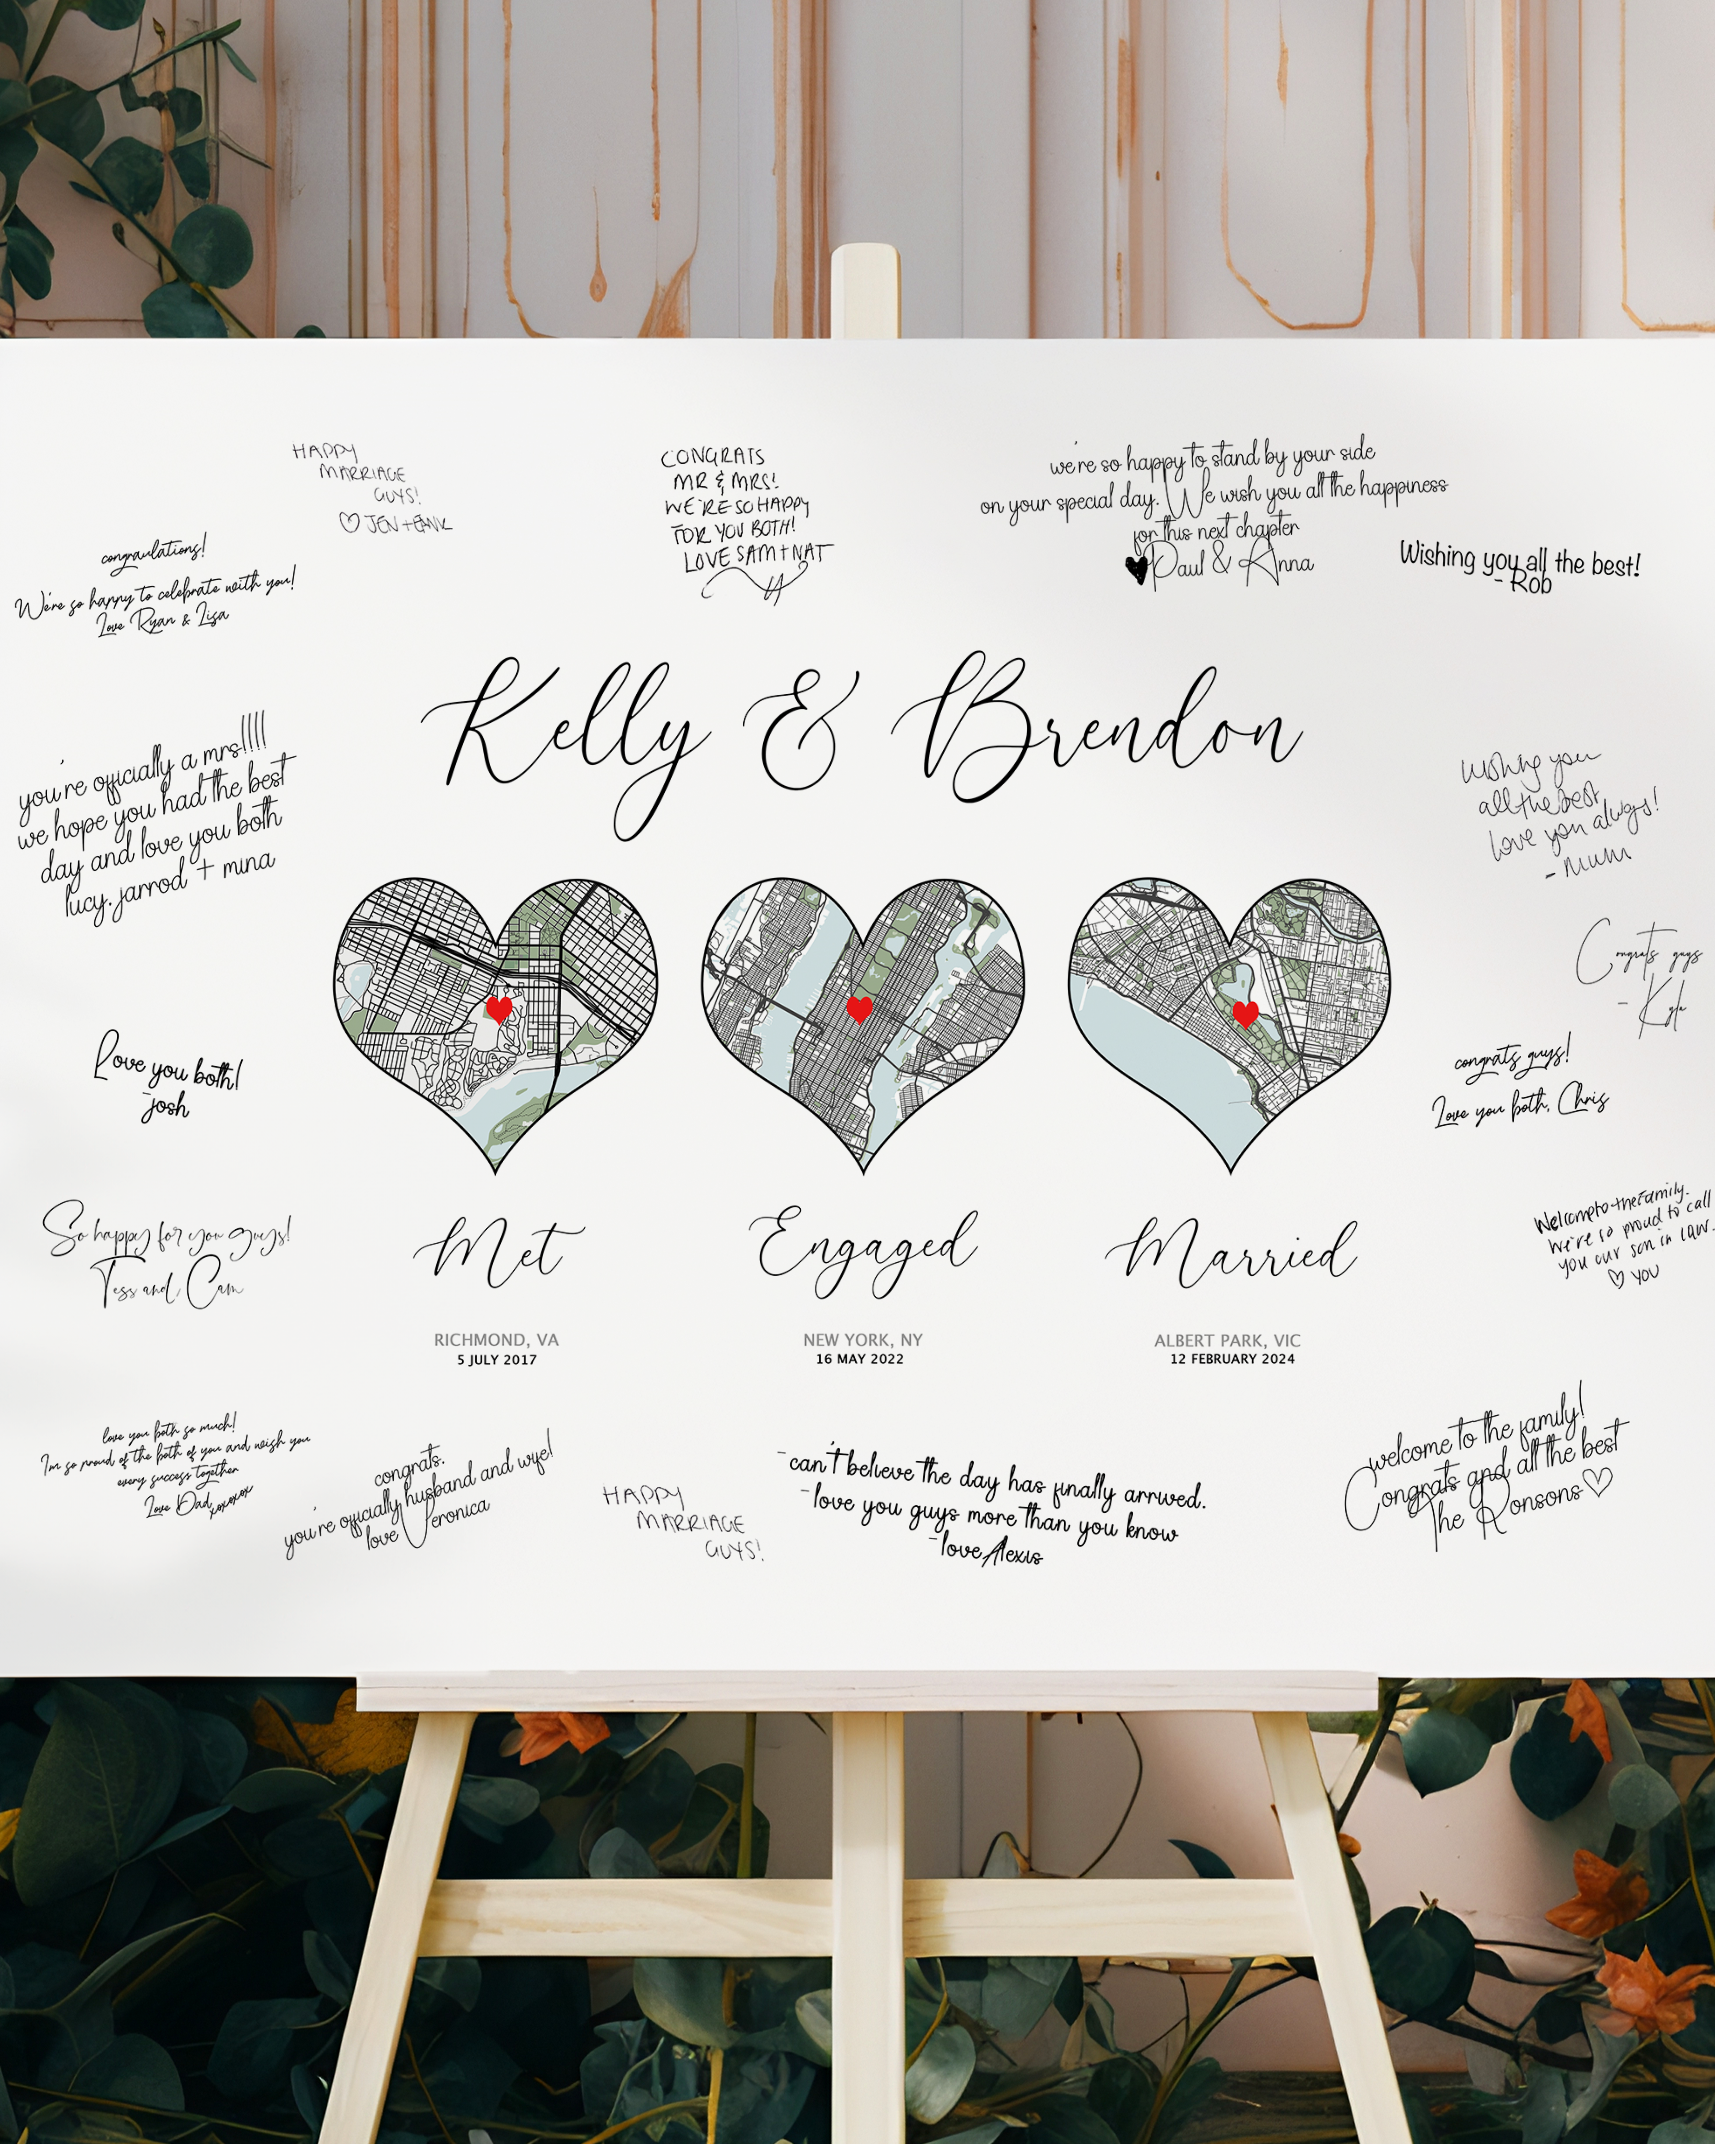 HAPPY
MARRIAGE
GUYS!
♡ JEN +
CONGRATS
MR & MRS!
WE'RE SO HAPPY
FOR YOU BOTH!
LOVE SAM + NAT
we're so happy to stand by your side
on your special day. We wish you all the happiness
for this next chapter
♥ Paul & Anna
Wishing you all the best!
- Rob
congraulations!
We're so happy to celebrate with you!
Love Ryan & Lisa
Kelly & Brendon
you're officially a mrs!!!!
we hope you had the best
day and love you both
lucy. jarrod + mina
wishing you
all the best
love you always!
- mum
Congrats guys
- Kyle
Love you both!
-josh
congrats guys!
Love you both, Chris
So happy for you guys!
Tess and Cam
Met
RICHMOND, VA
5 JULY 2017
Engaged
NEW YORK, NY
16 MAY 2022
Married
ALBERT PARK, VIC
12 FEBRUARY 2024
Welcome to the family.
We're so proud to call
you our son in law.
♡ YOU
love you both so much!
I'm so proud of the both of you and wish you
every success together
Love Dad xoxoxox
congrats.
you're officially husband and wife!
love Veronica
HAPPY
MARRIAGE
GUYS!
-can't believe the day has finally arrived.
-love you guys more than you know
-love Alexis
welcome to the family!
Congrats and all the best
The Ronsons ♡